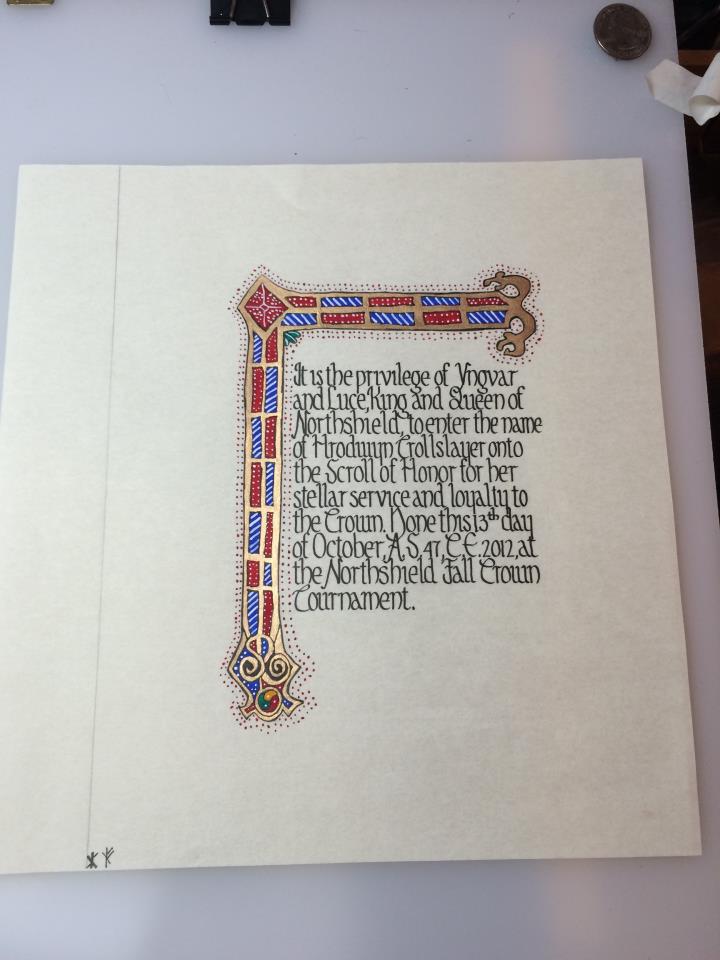 It is the privilege of Yngvar
and Luce, King and Queen of
Northshield, to enter the name
of Hrodwyn Trollslayer onto
the Scroll of Honor for her
stellar service and loyalty to
the Crown. Done this 13th day
of October, A.S. 47, C.E. 2012, at
the Northshield Fall Crown
Tournament.